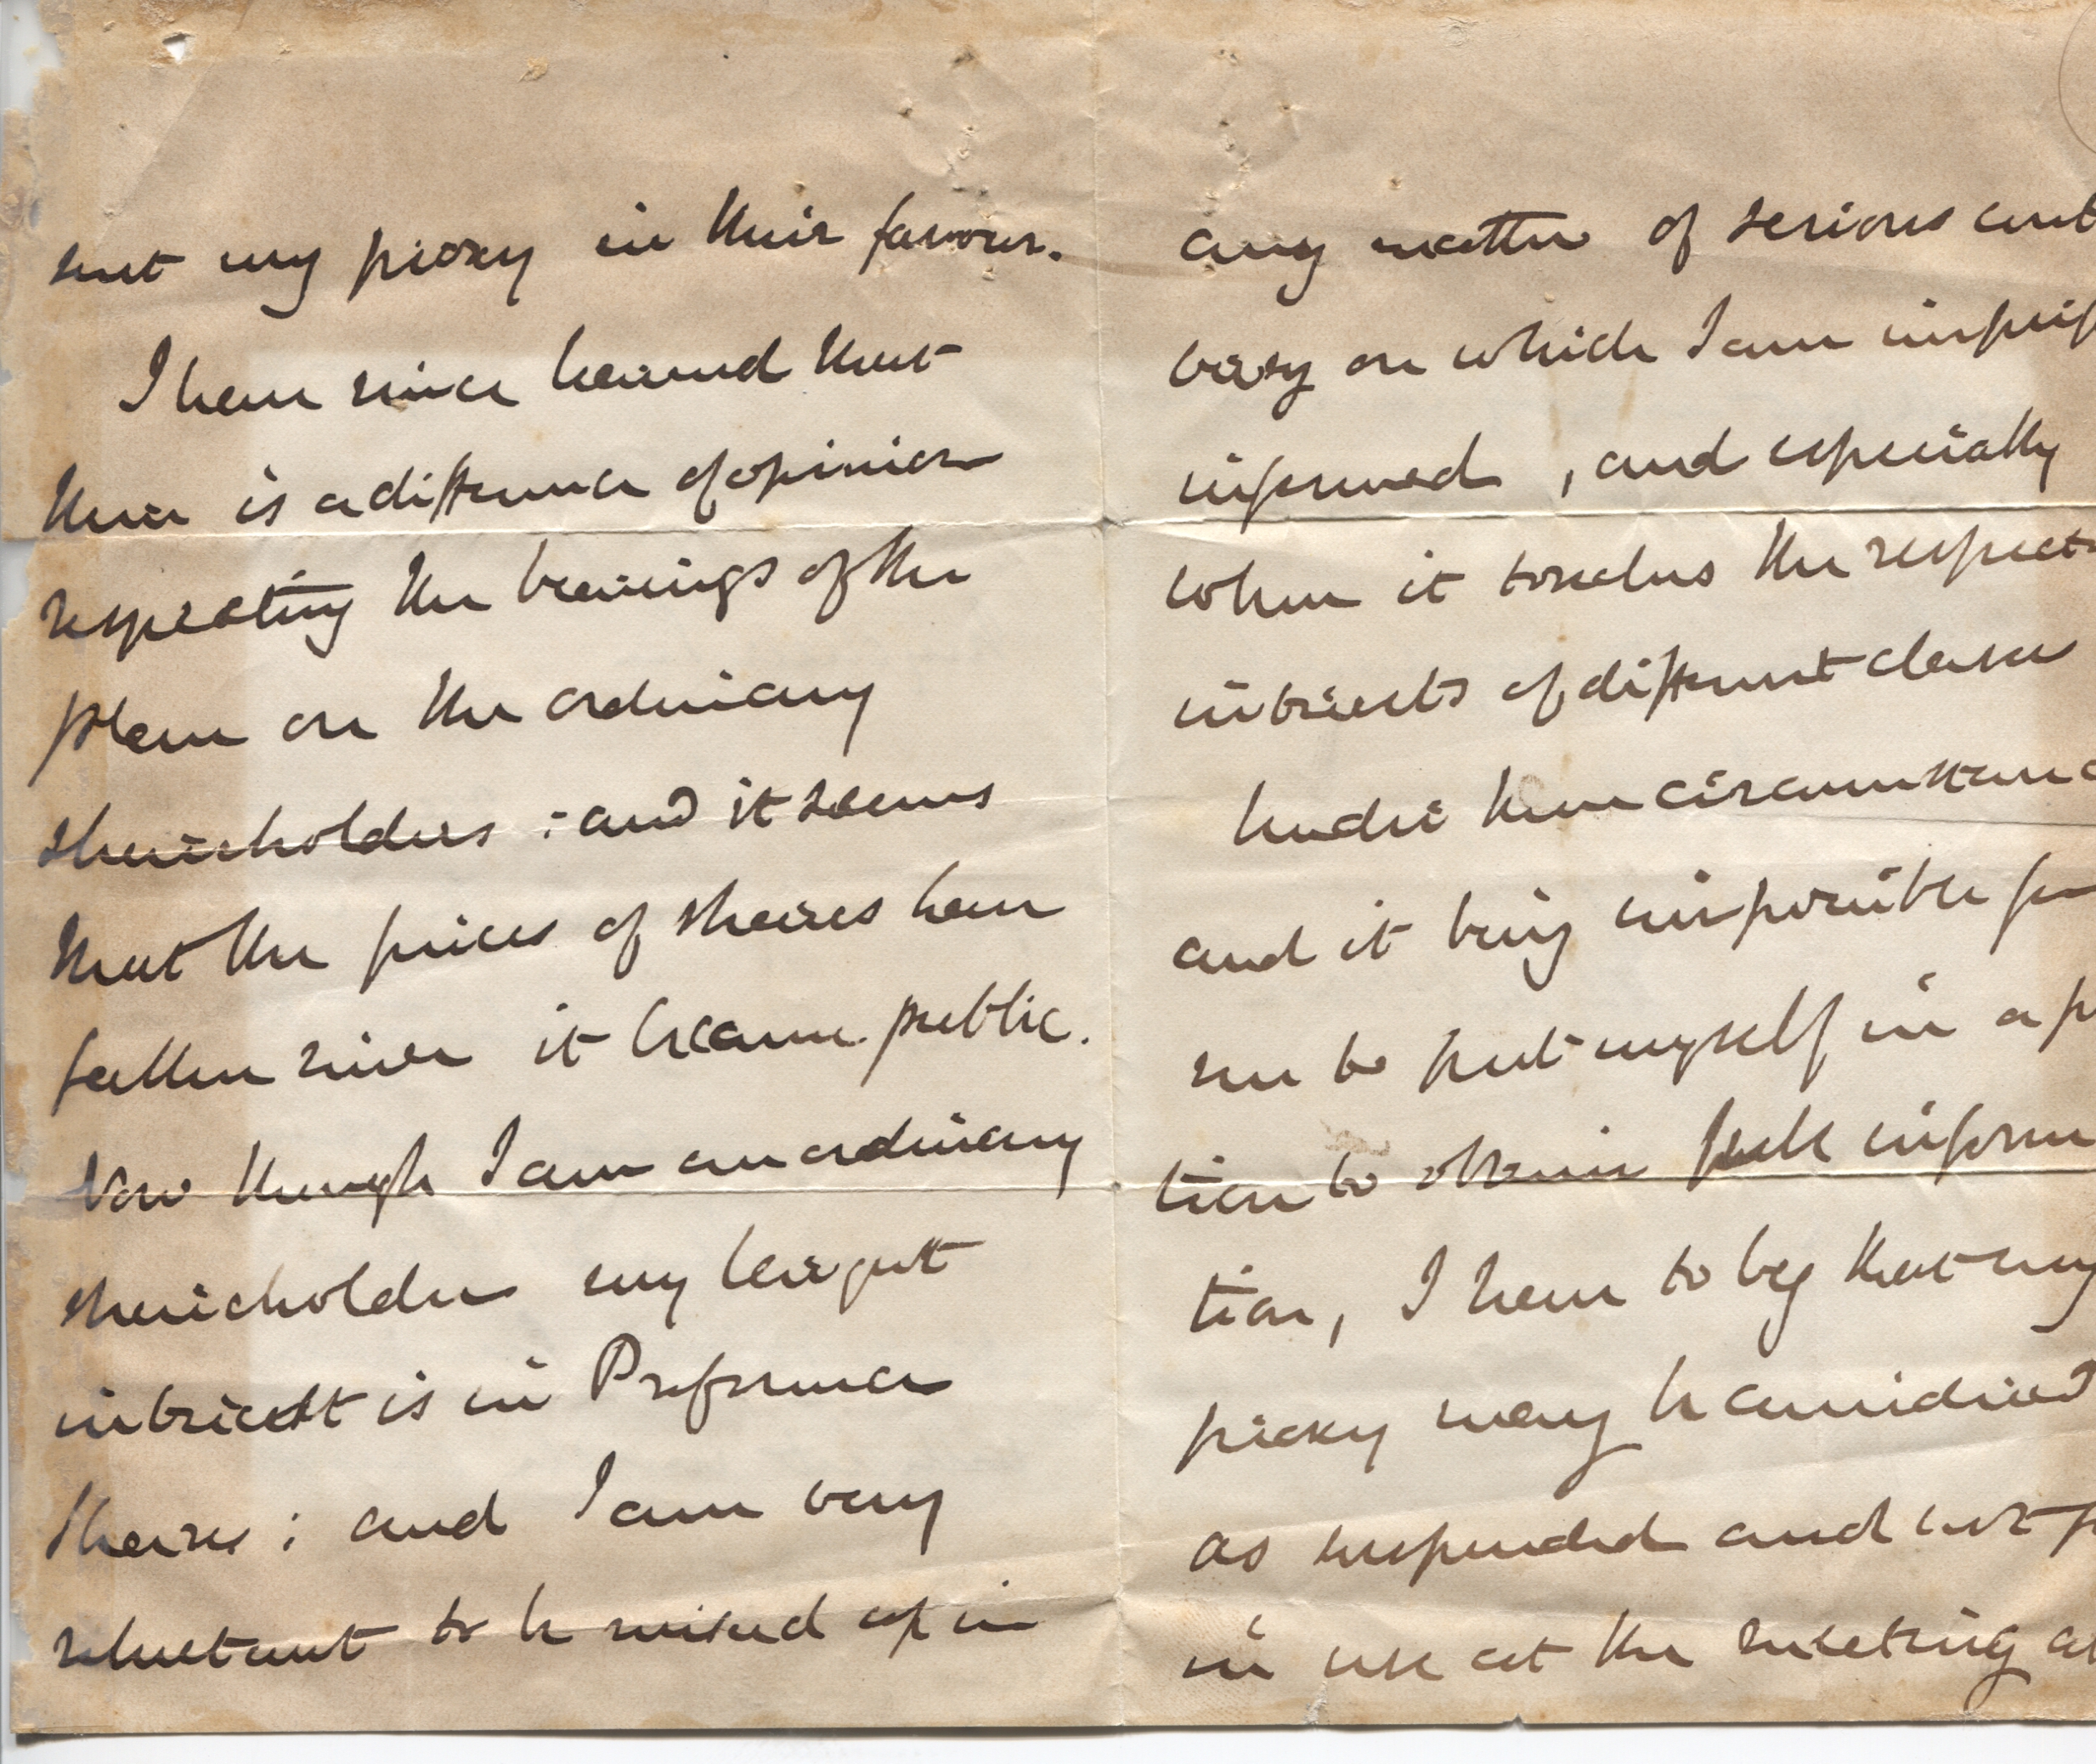 sent my proxy in their favour.
I have since learned that
there is a difference of opinion
respecting the bearings of the
plan on the ordinary
shareholders : and it seems
that the prices of shares have
fallen since it became public.
Now though I am an ordinary
shareholder my largest
interest is in Preference
shares ; and I am very
reluctant to be mixed up in
any matter of serious cont
versy on which I am imperf
informed , and especially
when it touches the respect
interests of different classes
Under these circumstanc
and it being impossible for
me to put myself in a po
tion to obtain full inform
tion, I have to beg that my
proxy may be considered
as suspended and not p
in use at the meeting